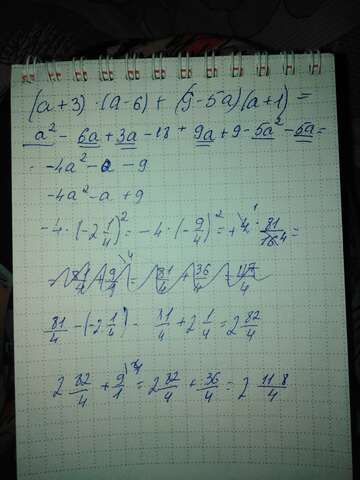 (a+3)·(a-6)+(9-5a)(a+1)=
a²-6a+3a-18+9a+9-5a²-5a=
-4a²-a-9
-4a²-a+9
-4·(-2 1/4)²=-4·(-9/4)²=+4¹·81/16 4=
81/4-(-2 1/4)- 81/4+2 1/4=2 82/4
2 82/4+9/1 ⁴=2 82/4+36/4=2 118/4